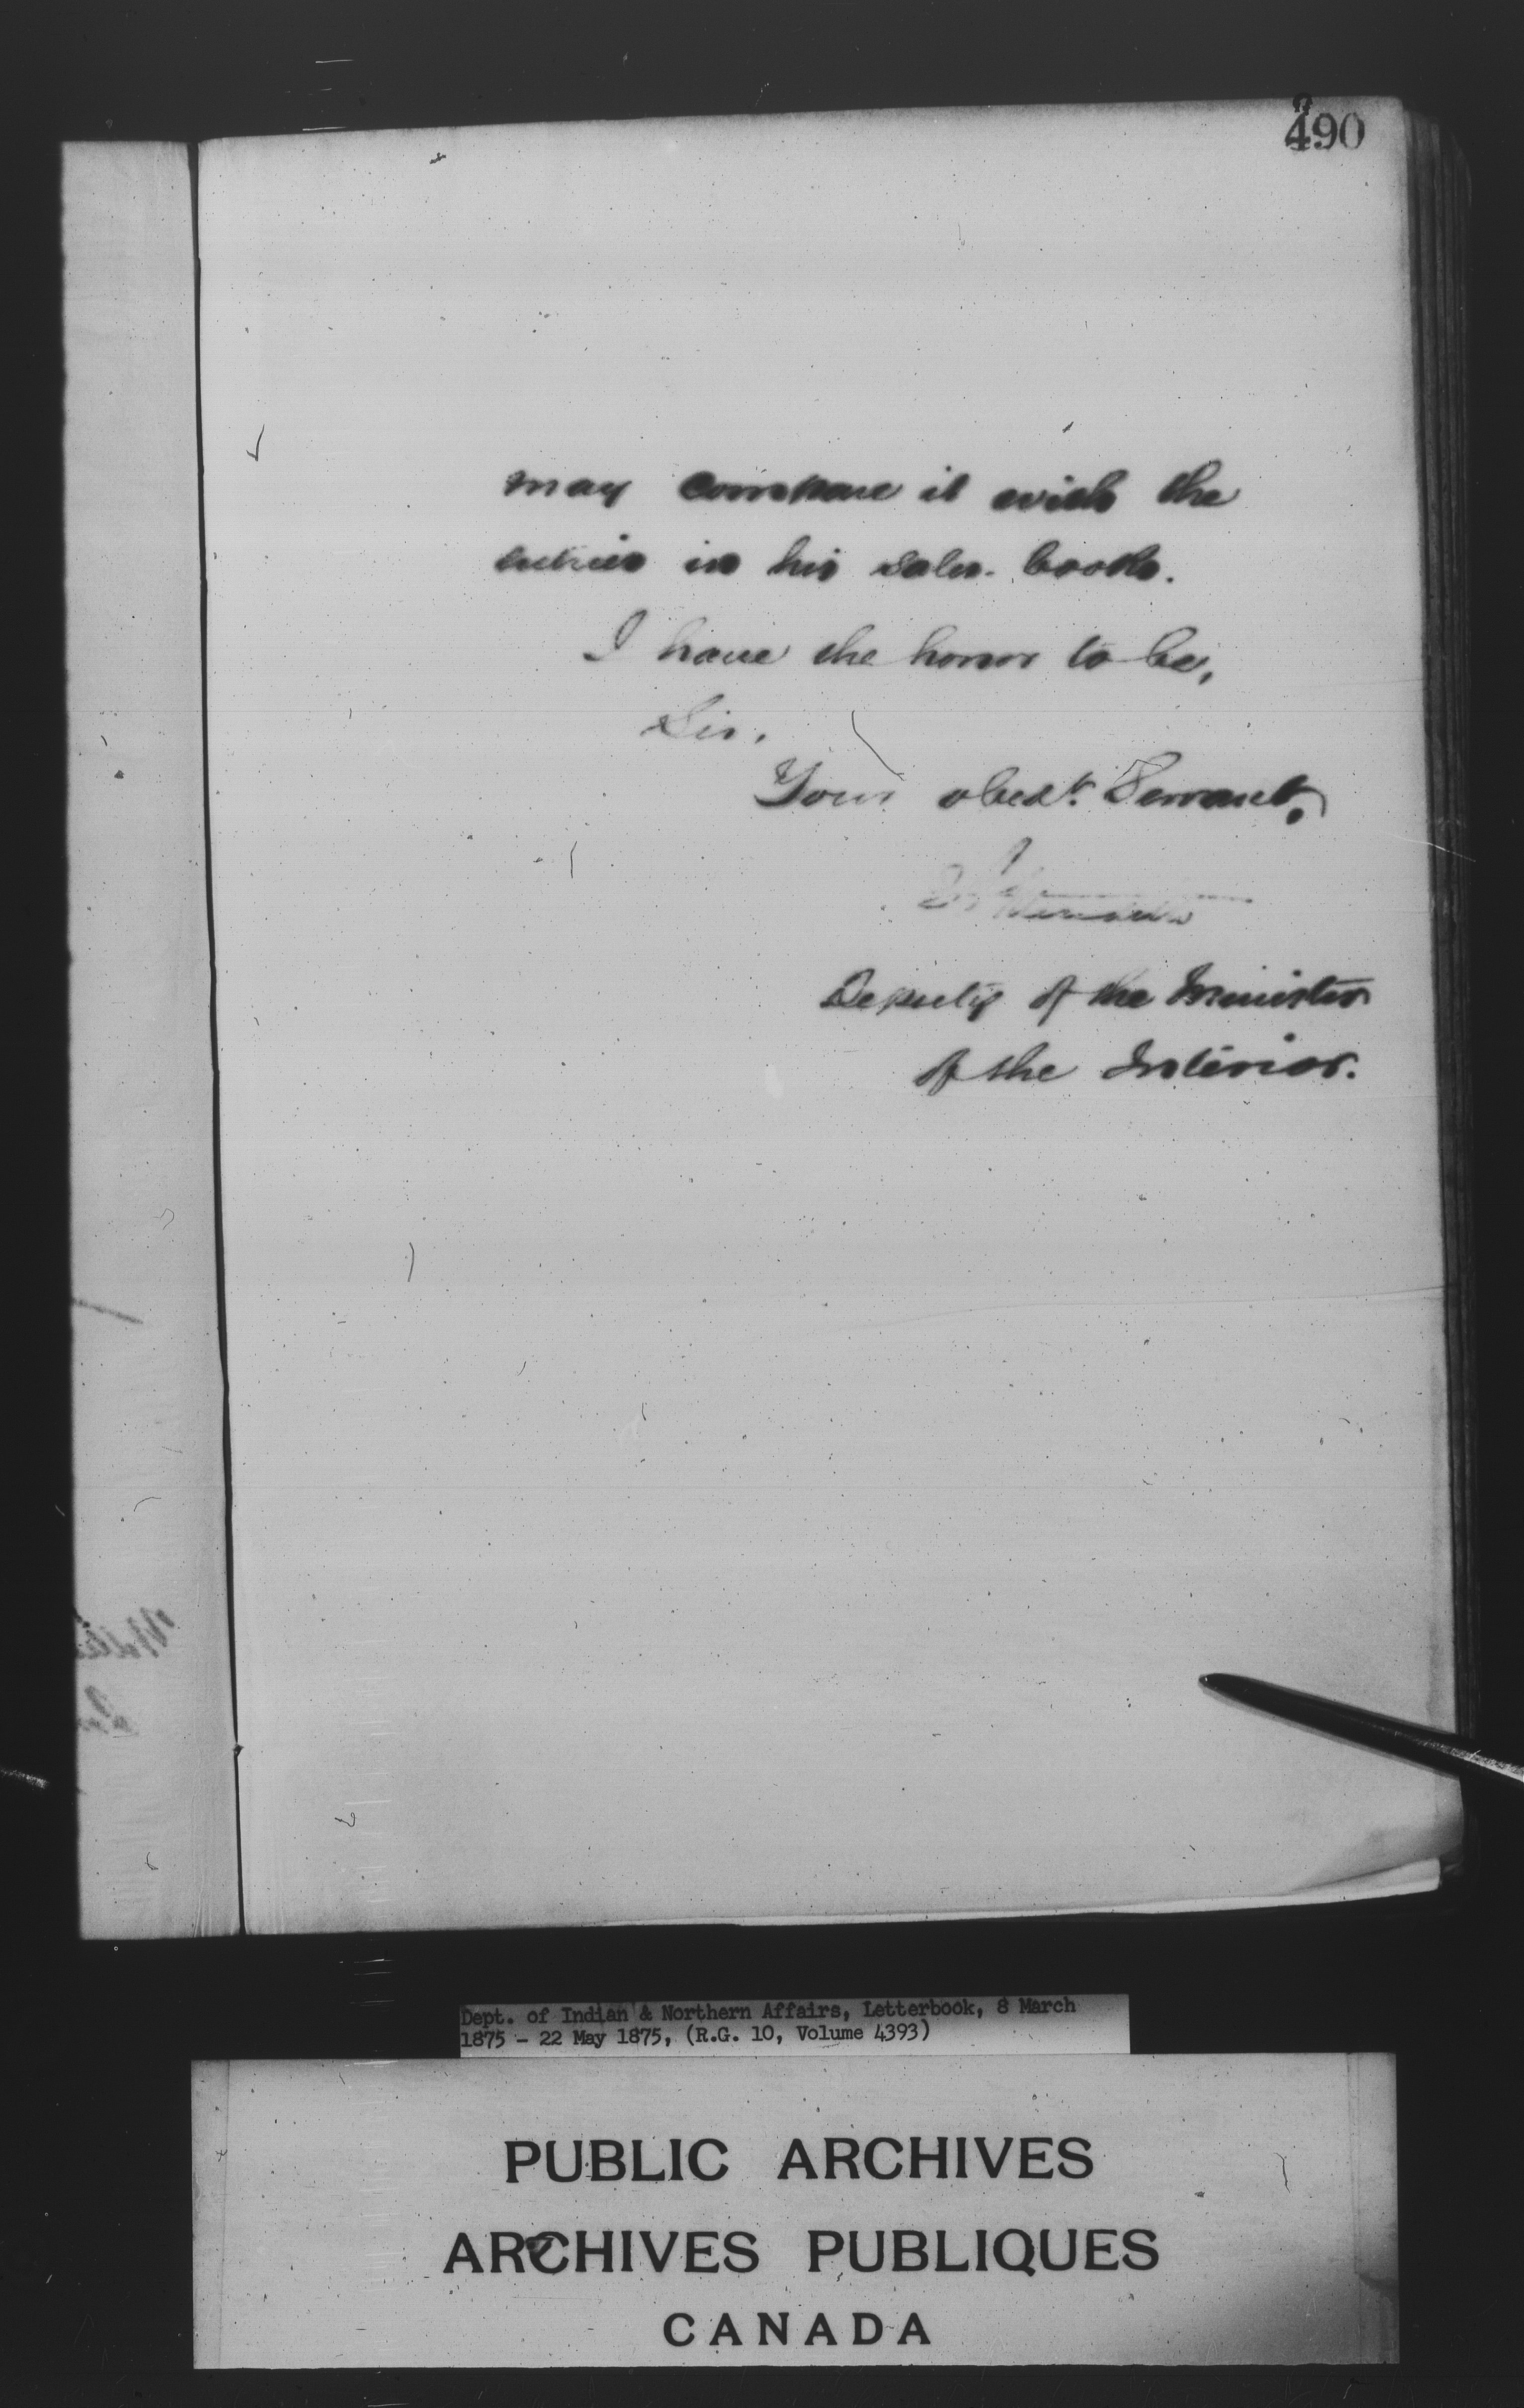 490
may compare it with the
entries in his sales-books.
I have the honor to be,
Sir,
Your obedt. Servant,
Deputy of the Minister
of the Interior.
Dept. of Indian & Northern Affairs, Letterbook, 8 March
1875 - 22 May 1875, (R.G. 10, Volume 4393)
PUBLIC ARCHIVES
ARCHIVES PUBLIQUES
CANADA